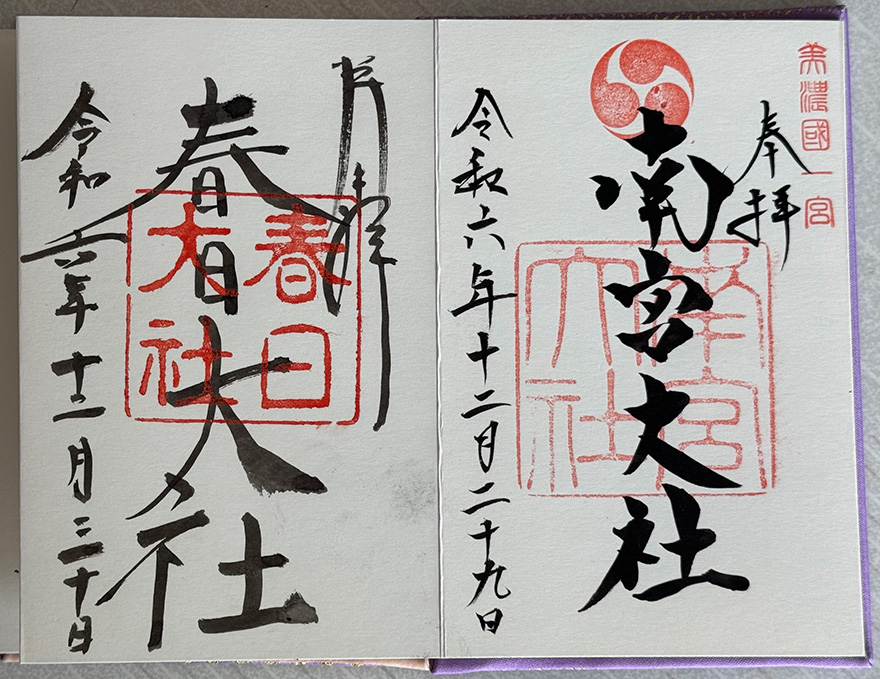 美濃國一宮
奉拝
南宮大社
南宮
大社
令和六年十二月二十九日
奉拝
春日大社
春日
大社
令和六年十二月三十日